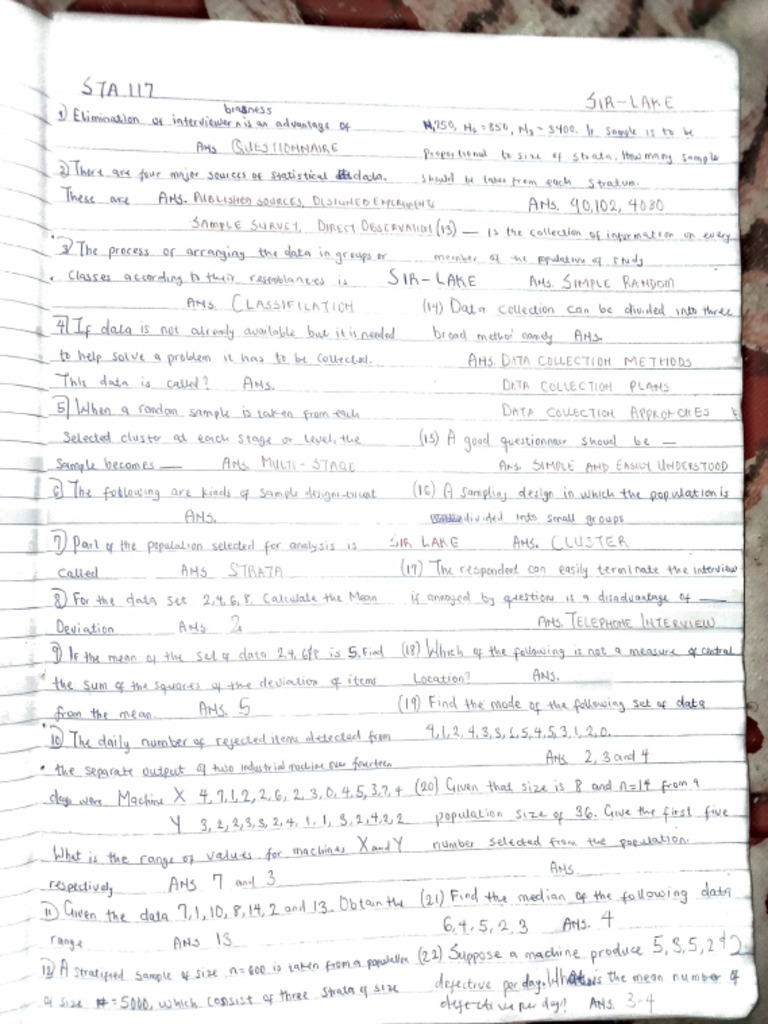 STA 117
SIR-LAKE
1) Elimination of interviewer biasness is an advantage of
Ans QUESTIONNAIRE
2) There are four major sources of statistical data.
These are Ans. PUBLISHED SOURCES, DESIGNED EXPERIMENTS
SAMPLE SURVEY, DIRECT OBSERVATION
3) The process of arranging the data in groups or
Classes according to their resemblances is
Ans. CLASSIFICATION
4) If data is not already available but it is needed
to help solve a problem it has to be collected.
This data is called? Ans.
5) When a random sample is taken from each
Selected cluster at each stage or level, the
Sample becomes — Ans MULTI-STAGE
6) The following are kinds of sample designs
Ans.
7) Part of the population selected for analysis is
Called Ans STRATA
8) For the data set 2,4,6,8. Calculate the Mean
Deviation Ans 2
9) If the mean of the set of data 2,4,6,8 is 5. Find
the sum of the squares of the deviation of items
from the mean. Ans. 5
10) The daily number of rejected items detected from
the separate output of two industrial machine over fourteen
days were Machine X 4,7,1,2,2,6,2,3,0,4,5,3,7,4
Y 3,2,2,3,3,2,4,1,1,3,2,4,2,2
What is the range of values for machines X and Y
respectively Ans 7 and 3
11) Given the data 7,1,10,8,14,2 and 13. Obtain the
range Ans 13
12) A stratified sample of size n=600 is taken from a population
of size =5000, which consist of three strata of size
N1750, N2=850, N3=3400. If sample is to be
proportional to size of strata. How many sample
should be taken from each stratum.
Ans. 90,102, 4080
(13) — is the collection of information on every
member of the population of study
SIR-LAKE Ans. SIMPLE RANDOM
(14) Data collection can be divided into three
broad method namely Ans.
Ans. DATA COLLECTION METHODS
DATA COLLECTION PLANS
DATA COLLECTION APPROACHES
(15) A good questionnair should be —
Ans. SIMPLE AND EASILY UNDERSTOOD
(16) A sampling design in which the population is
divided into small groups
SIR LAKE Ans. CLUSTER
(17) The respondent can easily terminate the interview
is annoyed by question is a disadvantage of —
Ans TELEPHONE INTERVIEW
(18) Which of the following is not a measure of central
Location? Ans.
(19) Find the mode of the following set of data
4,1,2,4,3,3,5,5,4,5,3,1,2,0.
Ans 2, 3 and 4
(20) Given that size is 8 and n=14 from a
population size of 36. Give the first five
number selected from the population.
Ans
(21) Find the median of the following data
6,4,5,2,3 Ans. 4
(22) Suppose a machine produce 5,3,5,2 & 2
defective per day. What is the mean number of
defective per day? Ans 3-4